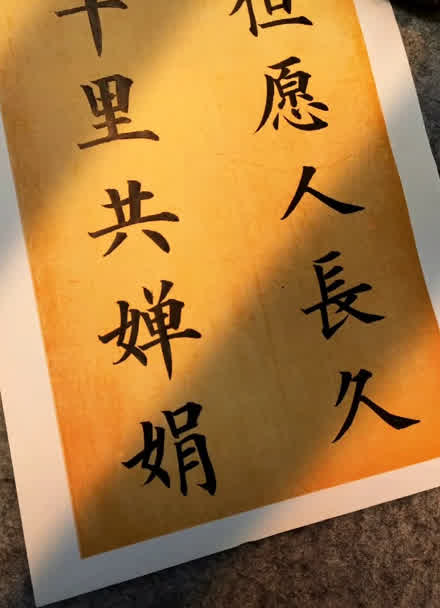 但愿人長久
千里共婵娟